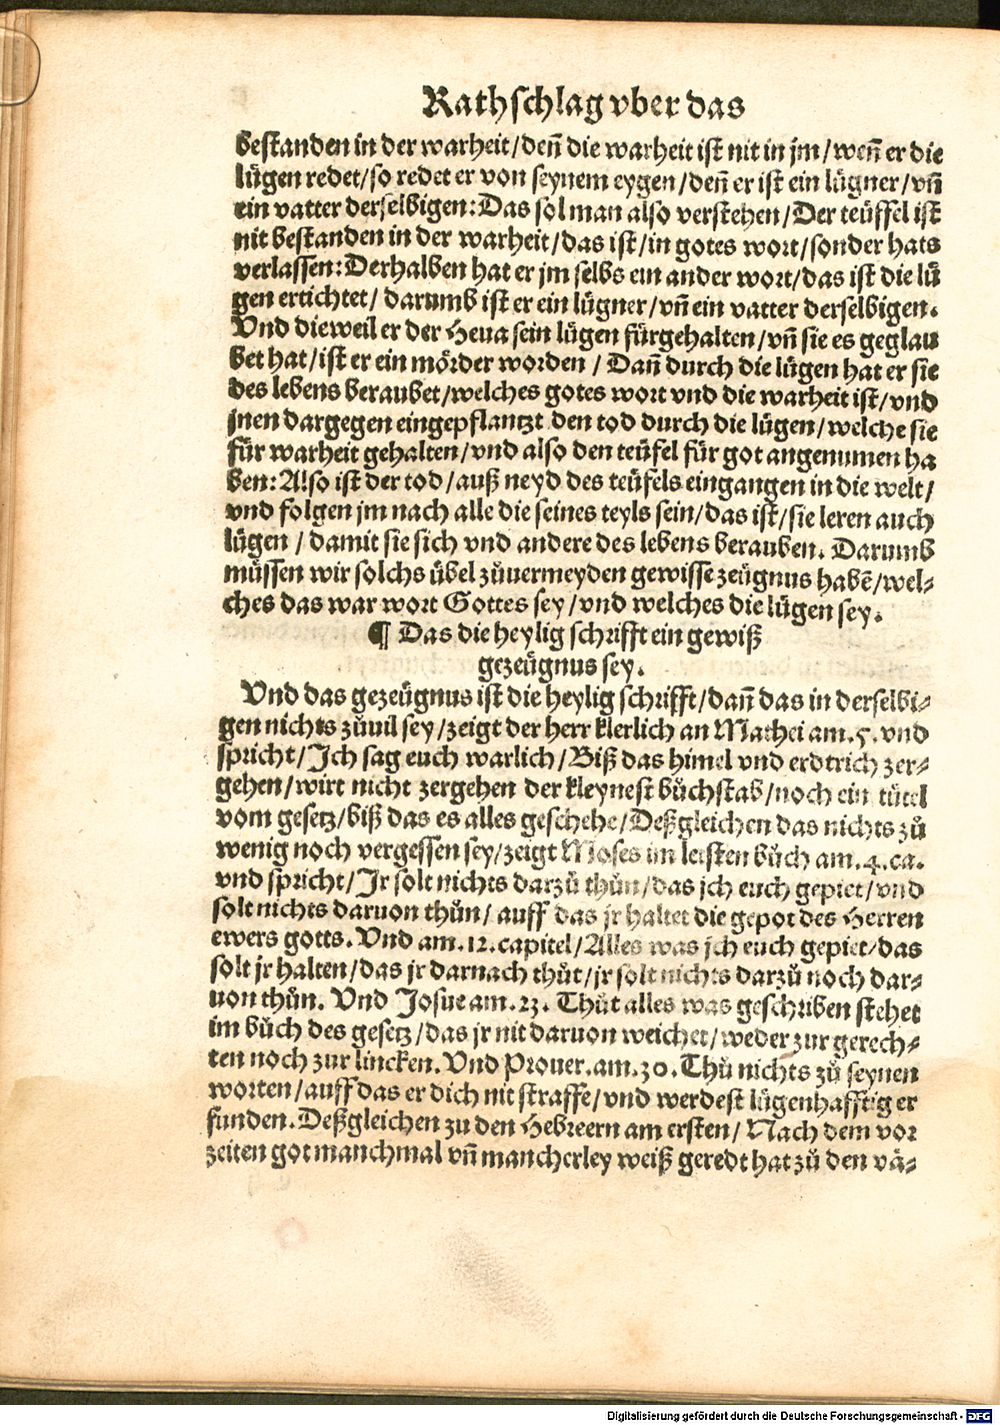 Rathschlag vber das
bestanden in der warheit/deñ die warheit ist nit in jm/weñ er die
lügen redet/so redet er von seynem eygen/deñ er ist ein lügner/vñ
ein vatter derselbigen: Das sol man also verstehen/Der teüffel ist
nit bestanden in der warheit/das ist/in gotes wort/sonder hats
verlassen: Derhalben hat er jm selbs ein ander wort/das ist die lü
gen ertichtet/ darumb ist er ein lügner/vñ ein vatter derselbigen.
Vnd dieweil er der Heua sein lügen fürgehalten/vñ sie es geglau
bet hat/ist er ein mörder worden / Dañ durch die lügen hat er sie
des lebens beraubet/welches gotes wort vnd die warheit ist/vnd
jnen dargegen eingepflantzt den tod durch die lügen/welche sie
für warheit gehalten/vnd also den teüfel für got angenumen ha
ben: Also ist der tod/auß neyd des teüfels eingangen in die welt/
vnd folgen jm nach alle die seines teyls sein/das ist/sie leren auch
lügen / damit sie sich vnd andere des lebens berauben. Darumb
müssen wir solchs übel zůuermeyden gewisse zeügnus habē/wel-
ches das war wort Gottes sey/vnd welches die lügen sey.
¶ Das die heylig schrifft ein gewiß
gezeügnus sey.
Vnd das gezeügnus ist die heylig schrifft/dañ das in derselbi-
gen nichts zůuil sey/zeigt der herr klerlich an Mathei am.5.vnd
spricht/Ich sag euch warlich/Biß das himel vnd erdtrich zer-
gehen/wirt nicht zergehen der kleynest bůchstab/noch ein tüttel
vom gesetz/biß das es alles geschehe/Deßgleichen das nichts zů
wenig noch vergessen sey/zeigt Moses im letsten bůch am.4.ca.
vnd spricht/Jr solt nichts darzů thůn/das jch euch gepiet/vnd
solt nichts daruon thůn/ auff das jr haltet die gepot des Herren
ewers gotts. Vnd am.12.capitel/Alles was jch euch gepiet/das
solt jr halten/das jr darnach thůt/jr solt nichts darzů noch dar-
uon thůn. Vnd Josue am.23. Thůt alles was geschriben stehet
im bůch des gesetz/das jr nit daruon weichet/weder zur gerech-
ten noch zur lincken. Vnd Prouer.am.30.Thů nichts zů seynen
worten/auff das er dich nit straffe/vnd werdest lügenhafftig er
funden. Deßgleichen zu den Hebreern am ersten/ Nach dem vor
zeiten got manchmal vñ mancherley weiß geredt hat zů den vä-
Digitalisierung gefördert durch die Deutsche Forschungsgemeinschaft - DFG